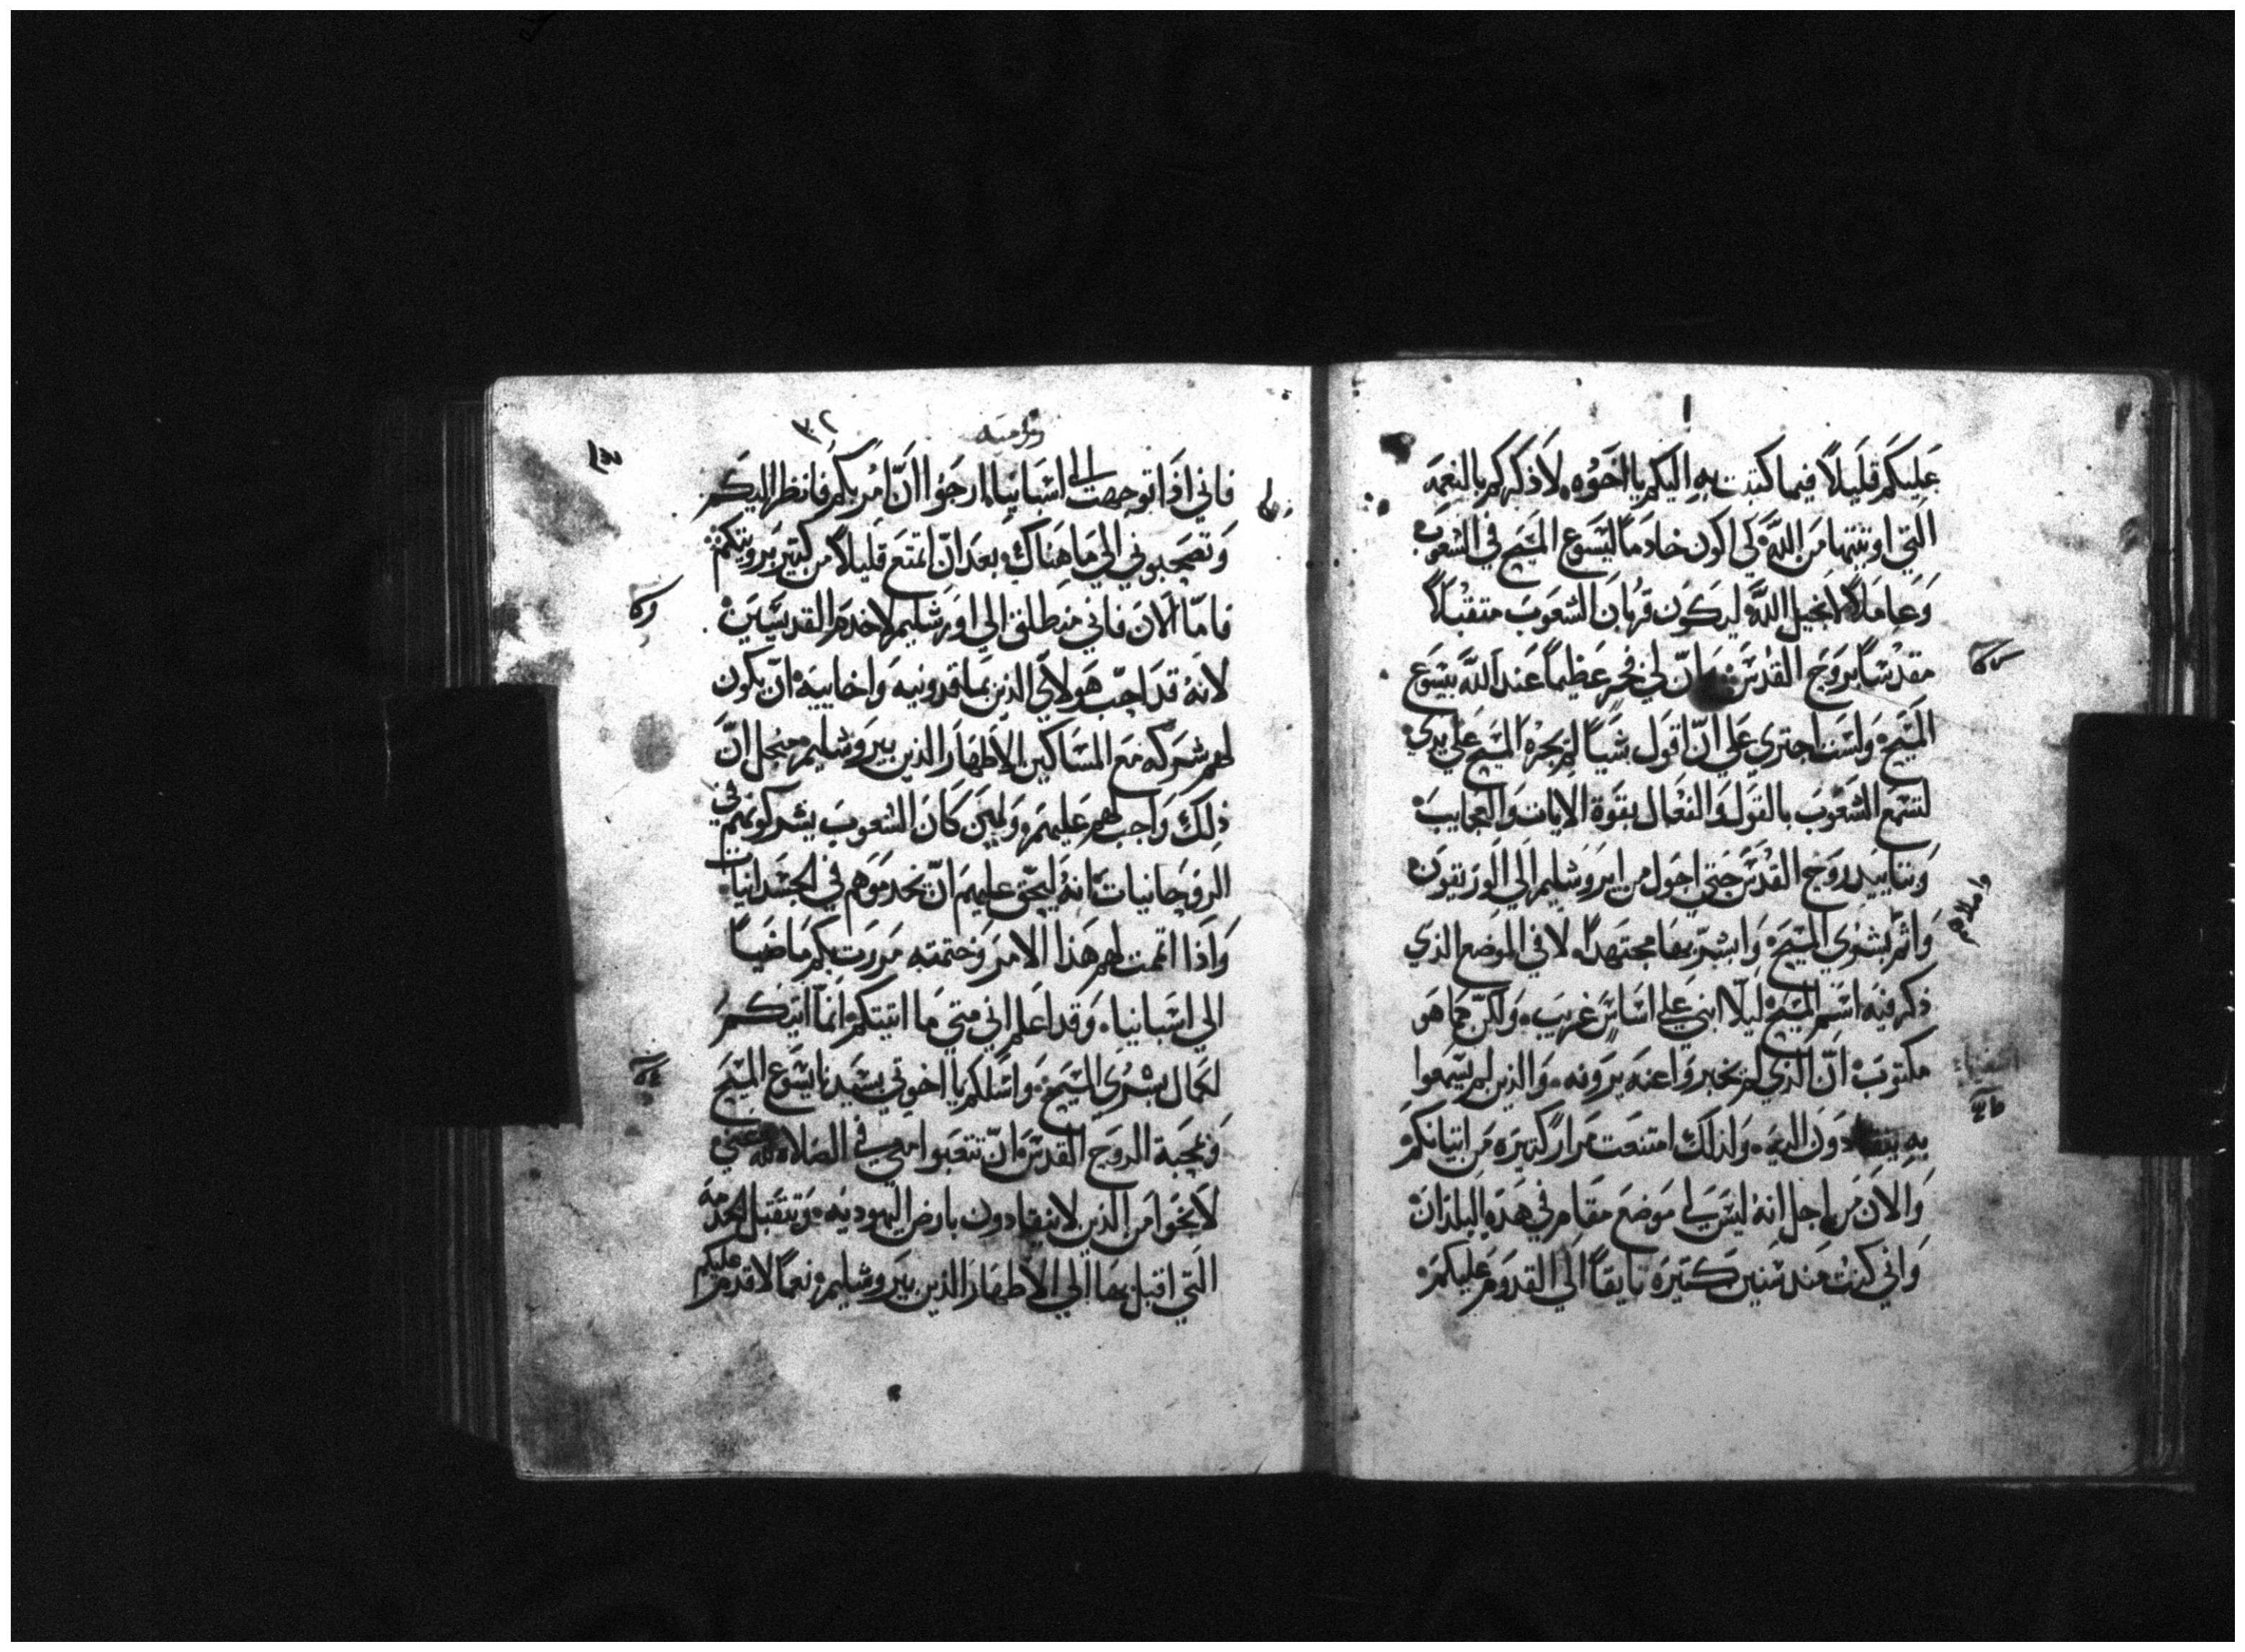 عليكم قليلاً فيما كتبت به اليكم يا اخوه لاذكركم بالنعمه
التي اوتيتها من الله كي اكون خادماً ليسوع المسيح في الشعوب
وعاملاً لانجيل الله ليكون قربان الشعوب متقبلاً
مقدساً بروح القدس وان لي فخر عظيماً عند الله بيسوع
المسيح ولست اجتري علي ان اقول شياً لم يجره المسيح علي يدي
لتسمع الشعوب بالقول والفعال بقوة الايات والعجايب
وبتاييد روح القدس حتي احول من ايروشليم الي الوريقون
واملاهم
واتم بشري المسيح وابشر بها مجتهداً لا في الموضع الذي
ذكر فيه اسم المسيح ليلا ابني علي اساس غريب ولكن كما هو
مكتوب ان الذي لم يخبروا عنه يرونه والذين لم يسمعوا
به ينقادون اليه ولذلك امتنعت مرار كثيره من اتيانكم
والان من اجل انه ليس لي موضع مقام في هذه البلدان
واني كنت منذ سنين كثيره تايقاً الي القدوم عليكم
روميه
٣٢
فاني اذا توجهت الي اسبانيا ارجوا ان امر بكم فانظر اليكم
وتصحبوني الي ما هناك بعد ان اتمتع قليلاً من كثير برويتكم
فاما الان فاني منطلق الي اورشليم لاخدم القديسين
لانه قد احب هولاي الذين بماقدونيه واخاييه ان يكون
لهم شركه مع المساكين الاطهار الذين بيروشليم من اجل ان
ذلك واجب لهم عليهم ولين كان الشعوب يشركونهم في
الروحانيات انه ليحق عليهم ان يخدموهم في الجسدانيات
واذا اتممت لهم هذا الامر وختمته مررت بكم ماضياً
الي اسبانيا وقد اعلم اني متي ما اتيتكم انما اتيكم
لكمال بشري المسيح واسلكم يا اخوتي بسيدنا يسوع المسيح
وبمحبة الروح القدس ان تتعبوا معي في الصلاه لله عني
لانجوا من الذين لا ينقادون بارض اليهوديه وتتقبل الخدمه
التي اقبل بها الي الاطهار الذين بيروشليم نعماً لاقدم عليكم